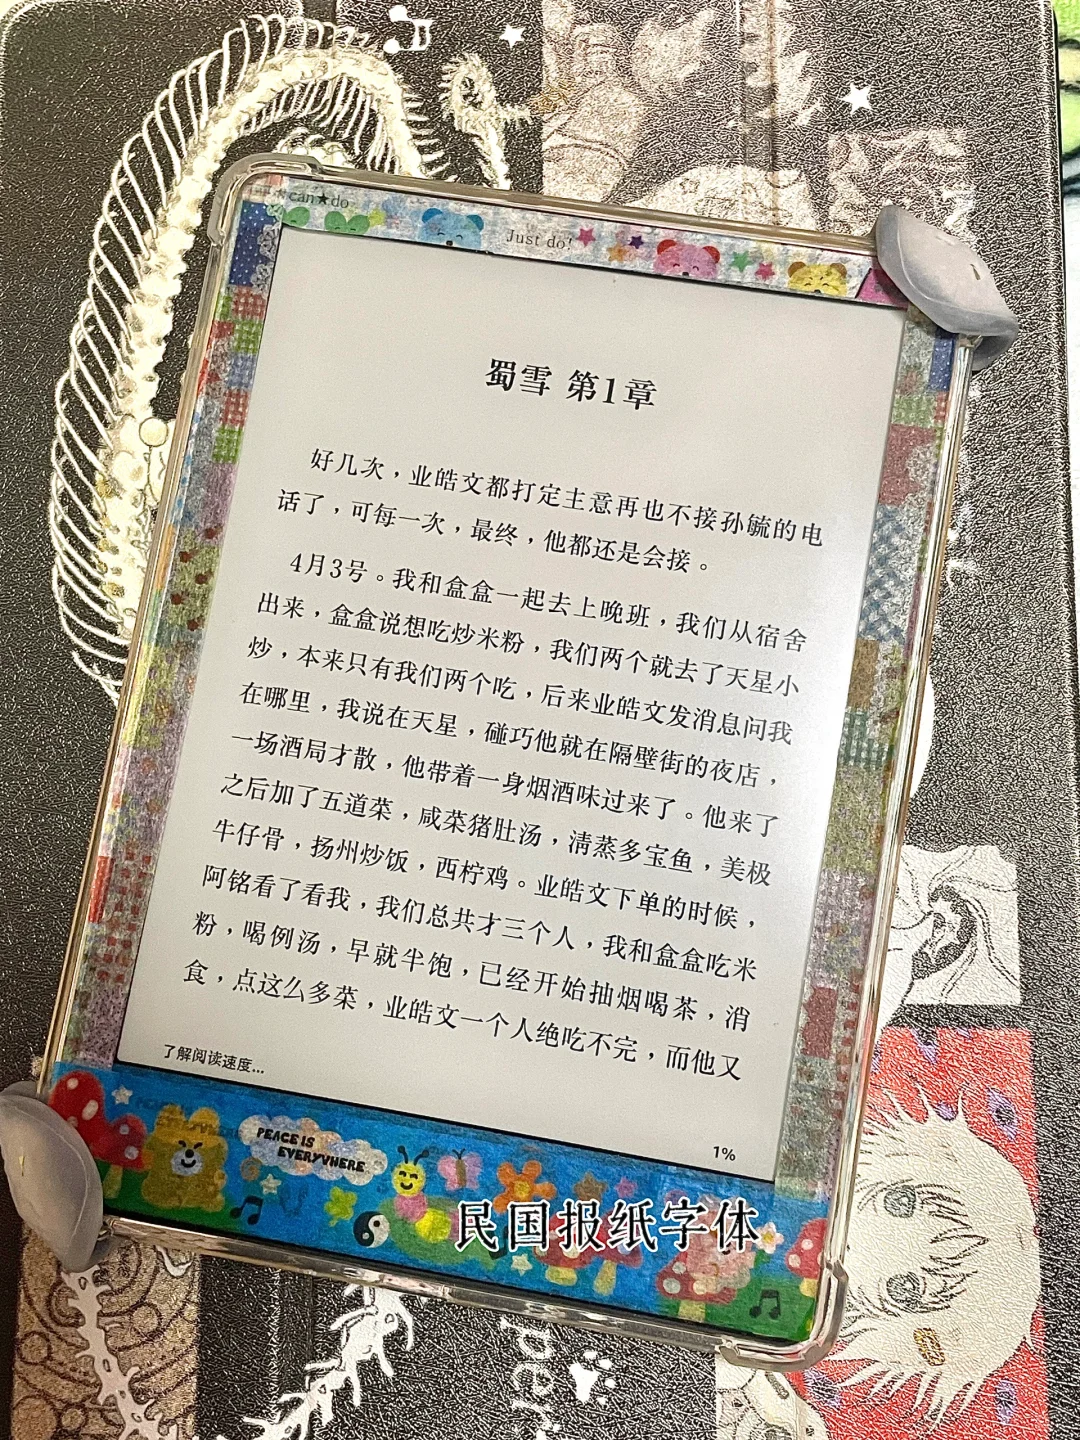 can★do
Just do!
蜀雪 第1章
好几次，业皓文都打定主意再也不接孙毓的电
话了，可每一次，最终，他都还是会接。
4月3号。我和盒盒一起去上晚班，我们从宿舍
出来，盒盒说想吃炒米粉，我们两个就去了天星小
炒，本来只有我们两个吃，后来业皓文发消息问我
在哪里，我说在天星，碰巧他就在隔壁街的夜店，
一场酒局才散，他带着一身烟酒味过来了。他来了
之后加了五道菜，咸菜猪肚汤，清蒸多宝鱼，美极
牛仔骨，扬州炒饭，西柠鸡。业皓文下单的时候，
阿铭看了看我，我们总共才三个人，我和盒盒吃米
粉，喝例汤，早就半饱，已经开始抽烟喝茶，消
食，点这么多菜，业皓文一个人绝吃不完，而他又
了解阅读速度...
1%
PEACE IS
EVERYVHERE
民国报纸字体
per